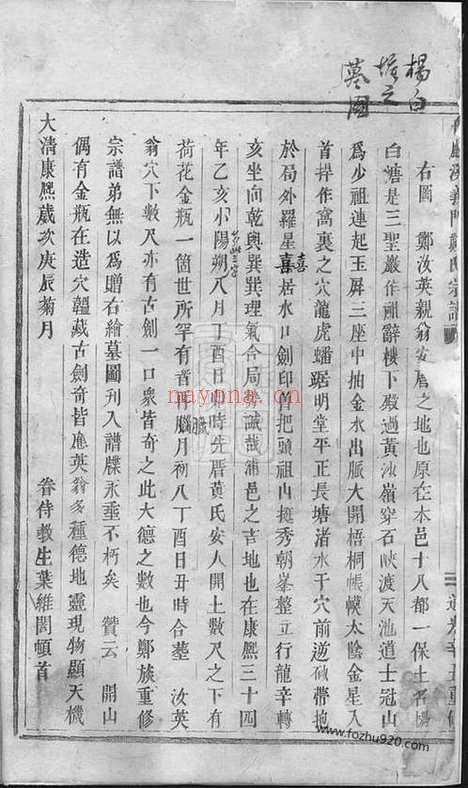 楊白
塘之
墓圖
義門鄭氏宗譜
右圖 鄭汝英親翁安厝之地也原在本邑十八都一保土名陽
白溏是三聖巖作祖辭樓下殿過黃沙嶺穿石峽渡天池道士冠山
爲少祖連起玉屏三座中抽金水出脈大開梧桐帳幙太陰金星入
首拌作窩裏之穴龍虎蟠踞明堂平正長塘渚水于穴前逆砂帶抱
於局外羅星喜居水口劍印曾把頭祖山挺秀朝峯整立行龍辛轉
喜
亥坐向乾與巽巽理氣合局洵誠哉浦邑之吉地也在康熙三十四
年乙亥小陽朔八月丁酉日卯時先厝黃氏安人開土數尺之下
荷花金瓶一箇世所罕有昔再臘月初八丁酉日丑時合塟 汝英
臘
翁穴下數尺亦有古劍一口衆皆奇之此大德之數也今鄭族重修
宗譜弟無以爲贈右繪墓圖刋入譜牒永垂不朽矣 贊云 開山
偶有金瓶在造穴韞藏古劍奇皆應英翁多種德地靈現物顯天機
大淸康熙歲次庚辰菊月 眷侍敎生葉維閣頓首
nayona.cn
www.fozhu920.com